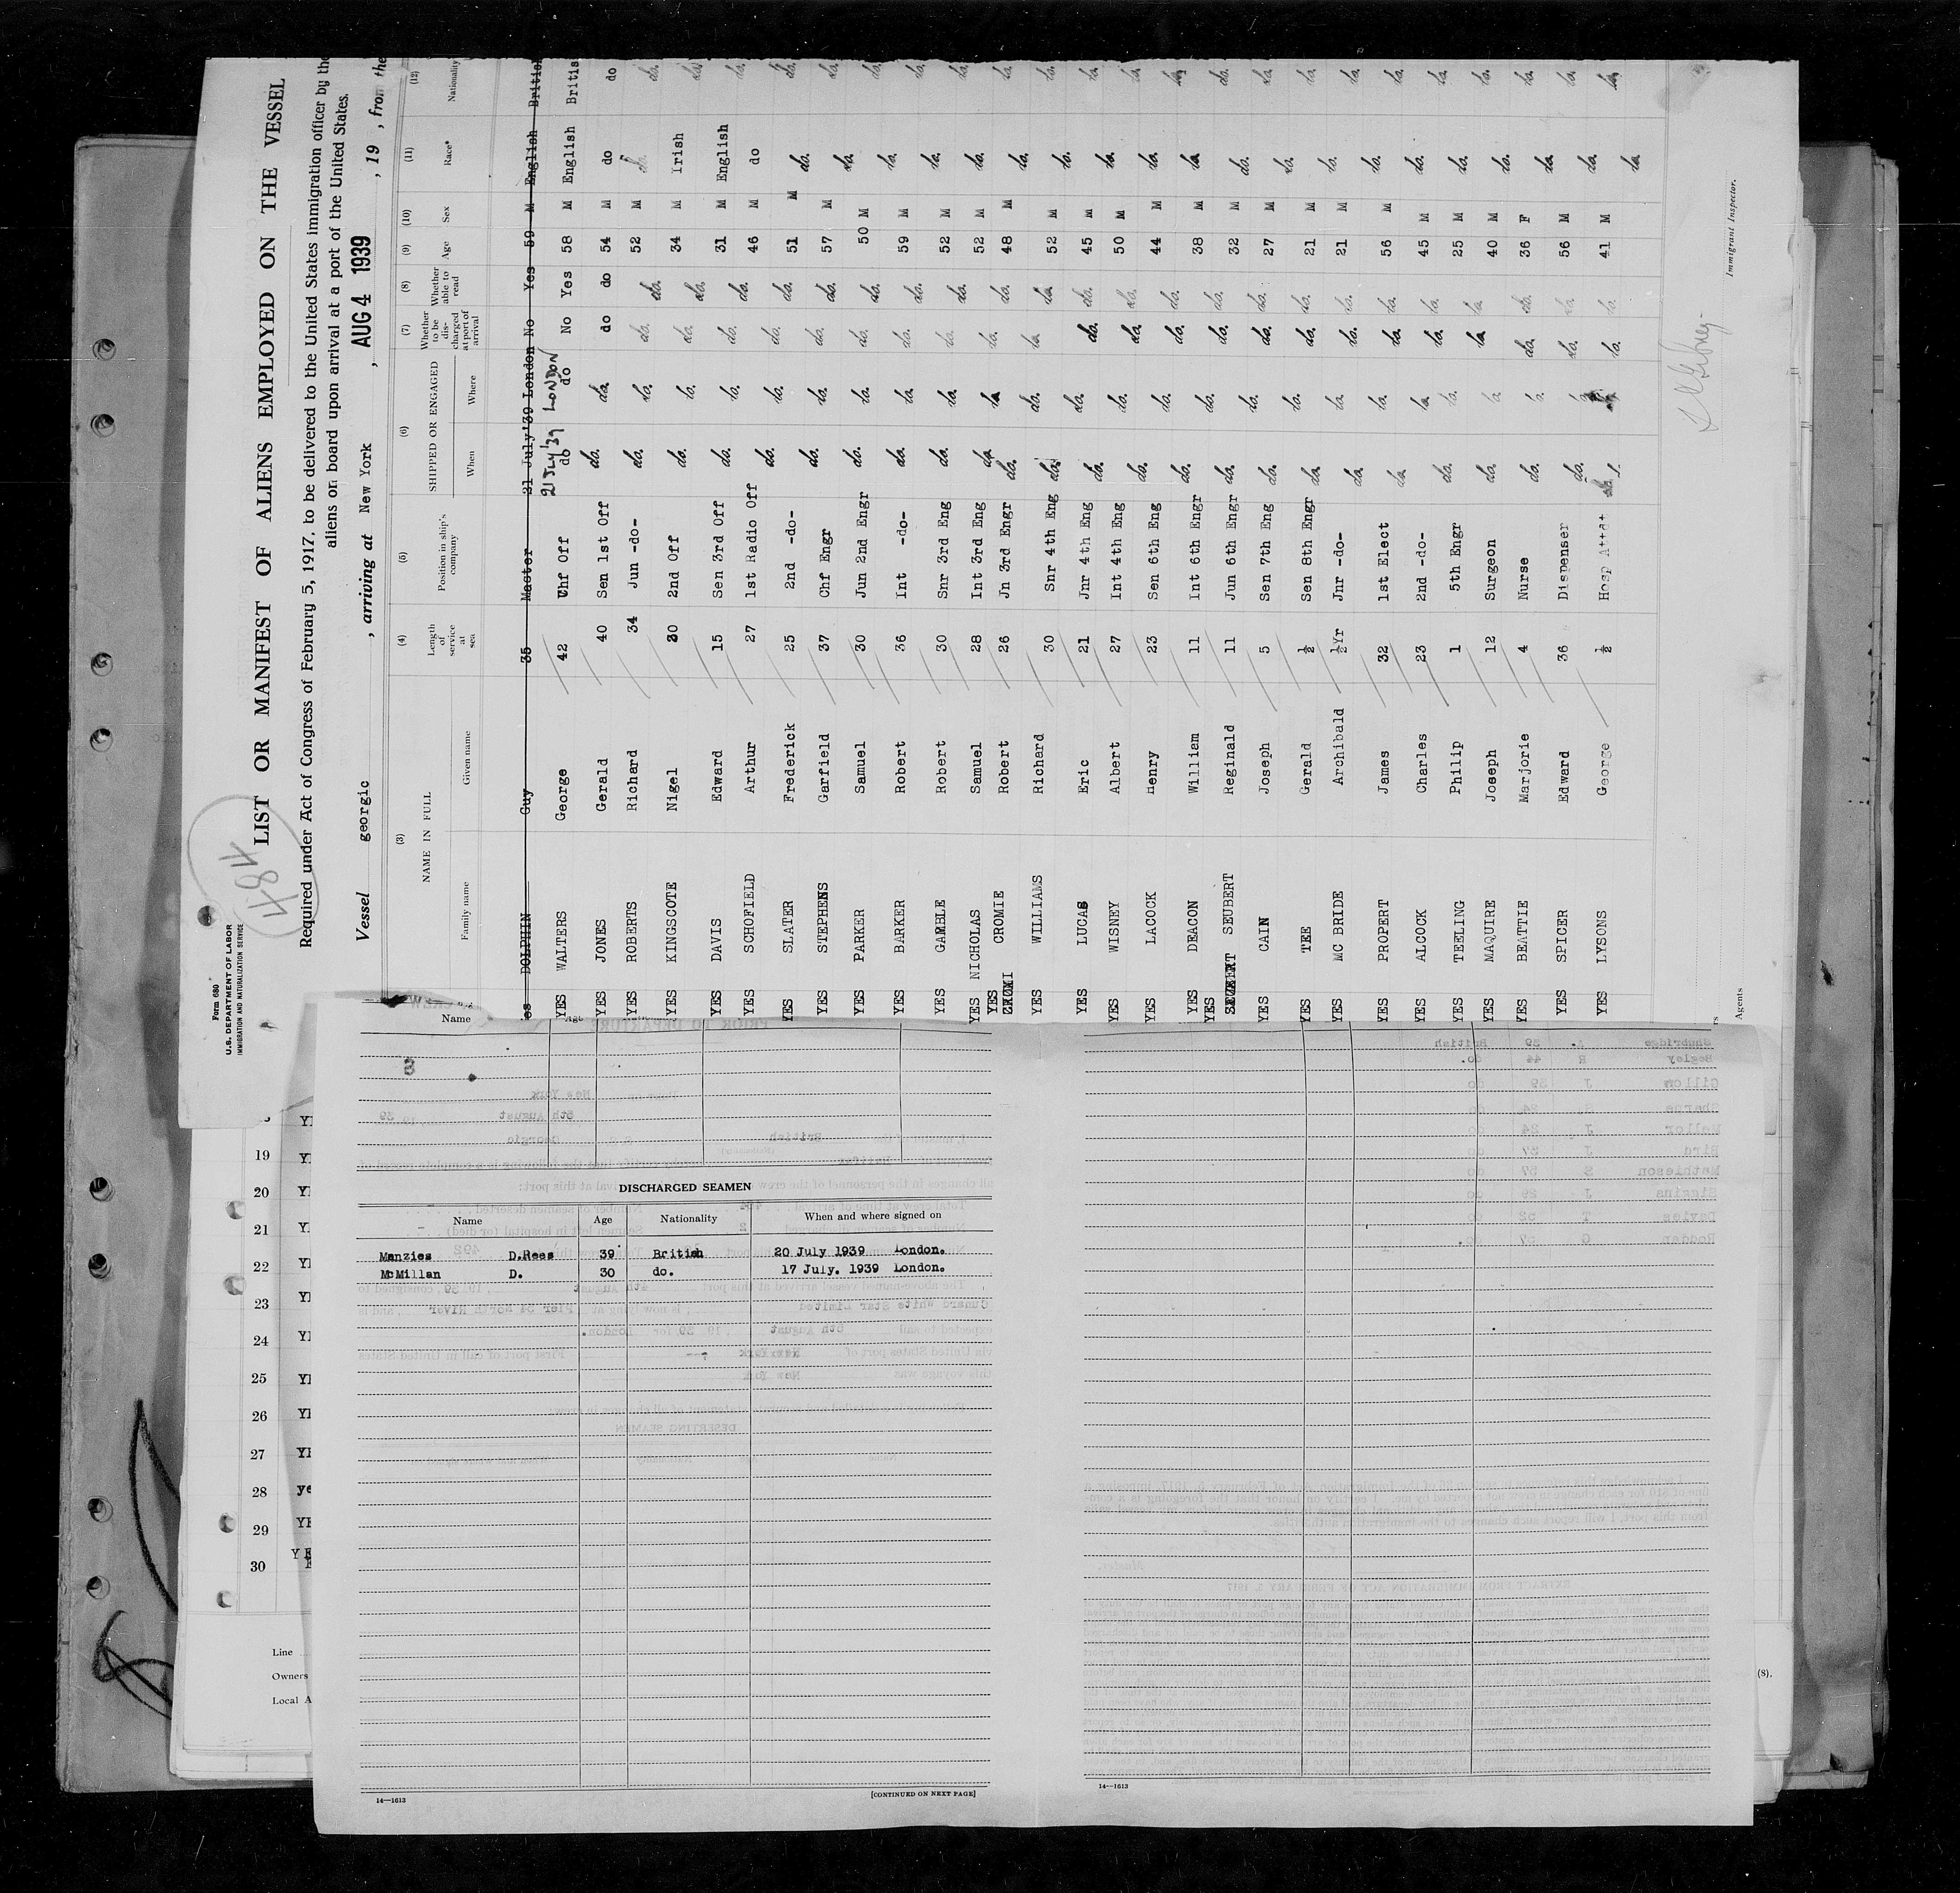 Form 680
U.S. DEPARTMENT OF LABOR
IMMIGRATION AND NATURALIZATION SERVICE
484
LIST OR MANIFEST OF ALIENS EMPLOYED ON THE VESSEL
Required under Act of Congress of February 5, 1917, to be delivered to the United States immigration officer by the
aliens on board upon arrival at a port of the United States.
Vessel georgic , arriving at New York , AUG 4 1939 , 19 , from the
(3) (4) (5) (6) (7) (8) (9) (10) (11) (12)
NAME IN FULL Length of service at sea Position in ship's company SHIPPED OR ENGAGED Whether to be discharged at port of arrival Whether able to read Age Sex Race* Nationality
Family name Given name When Where
es DOLPHIN Guy 35 Master 21 July'39 London No Yes 59 M English British
21 July '39 LONDON
YES WALTERS George 42 Chf Off do do No Yes 58 M English Britis
YES JONES Gerald 40 Sen 1st Off do. do. do do 54 M do do
YES ROBERTS Richard 34 Jun -do- do. do. do. do. 52 M do. do.
YES KINGSCOTE Nigel 30 2nd Off do. do. do. do. 34 M Irish do.
YES DAVIS Edward 15 Sen 3rd Off do. do. do. do. 31 M English do.
YES SCHOFIELD Arthur 27 1st Radio Off do. do. do. do. 46 M do do.
YES SLATER Frederick 25 2nd -do- do. do. do. do. 51 M do. do.
YES STEPHENS Garfield 37 Chf Engr do. do. do. do. 57 M do. do.
YES PARKER Samuel 30 Jun 2nd Engr do. do. do. do. 50 M do. do.
YES BARKER Robert 36 Int -do- do. do. do. do. 59 M do. do.
YES GAMBLE Robert 30 Snr 3rd Eng do. do. do. do. 52 M do. do.
YES NICHOLAS Samuel 28 Int 3rd Eng do. do. do. do. 52 M do. do.
YES CROMIE Robert 26 Jn 3rd Engr do. do. do. do. 48 M do. do.
YES WILLIAMS Richard 30 Snr 4th Eng do. do. do. do. 52 M do. do.
YES LUCAS Eric 21 Jnr 4th Eng do. do. do. do. 45 M do. do.
YES WISNEY Albert 27 Int 4th Eng do. do. do. do. 50 M do. do.
YES LACOCK Henry 23 Sen 6th Eng do. do. do. do. 44 M do. do.
YES DEACON William 11 Int 6th Engr do. do. do. do. 38 M do. do.
YES SEUBERT Reginald 11 Jun 6th Engr do. do. do. do. 32 M do. do.
YES CAIN Joseph 5 Sen 7th Eng do. do. do. do. 27 M do. do.
YES TEE Gerald ½ Sen 8th Engr do. do. do. do. 21 M do. do.
YES MC BRIDE Archibald ½Yr Jnr -do- do. do. do. do. 21 M do. do.
YES PROPERT James 32 1st Elect do. do. do. do. 56 M do. do.
YES ALCOCK Charles 23 2nd -do- do. do. do. do. 45 M do. do.
YES TEELING Philip 1 5th Engr do. do. do. do. 25 M do. do.
YES MAQUIRE Joseph 12 Surgeon do. do. do. do. 40 M do. do.
YES BEATTIE Marjorie 4 Nurse do. do. do. do. 36 F do. do.
YES SPICER Edward 36 Dispenser do. do. do. do. 56 M do. do.
YES LYSONS George ½ Hosp Attat do. do. do. do. 41 M do. do.
Agents
Immigrant Inspector.
Name Age
3
DISCHARGED SEAMEN
Name Age Nationality When and where signed on
Menzies D.Rees 39 British 20 July 1939 London.
McMillan D. 30 do. 17 July. 1939 London.
14—1613
[CONTINUED ON NEXT PAGE]
14—1613
19
20
21
22
23
24
25
26
27
28 ye
29
30
Line
Owners
Local A
(S).